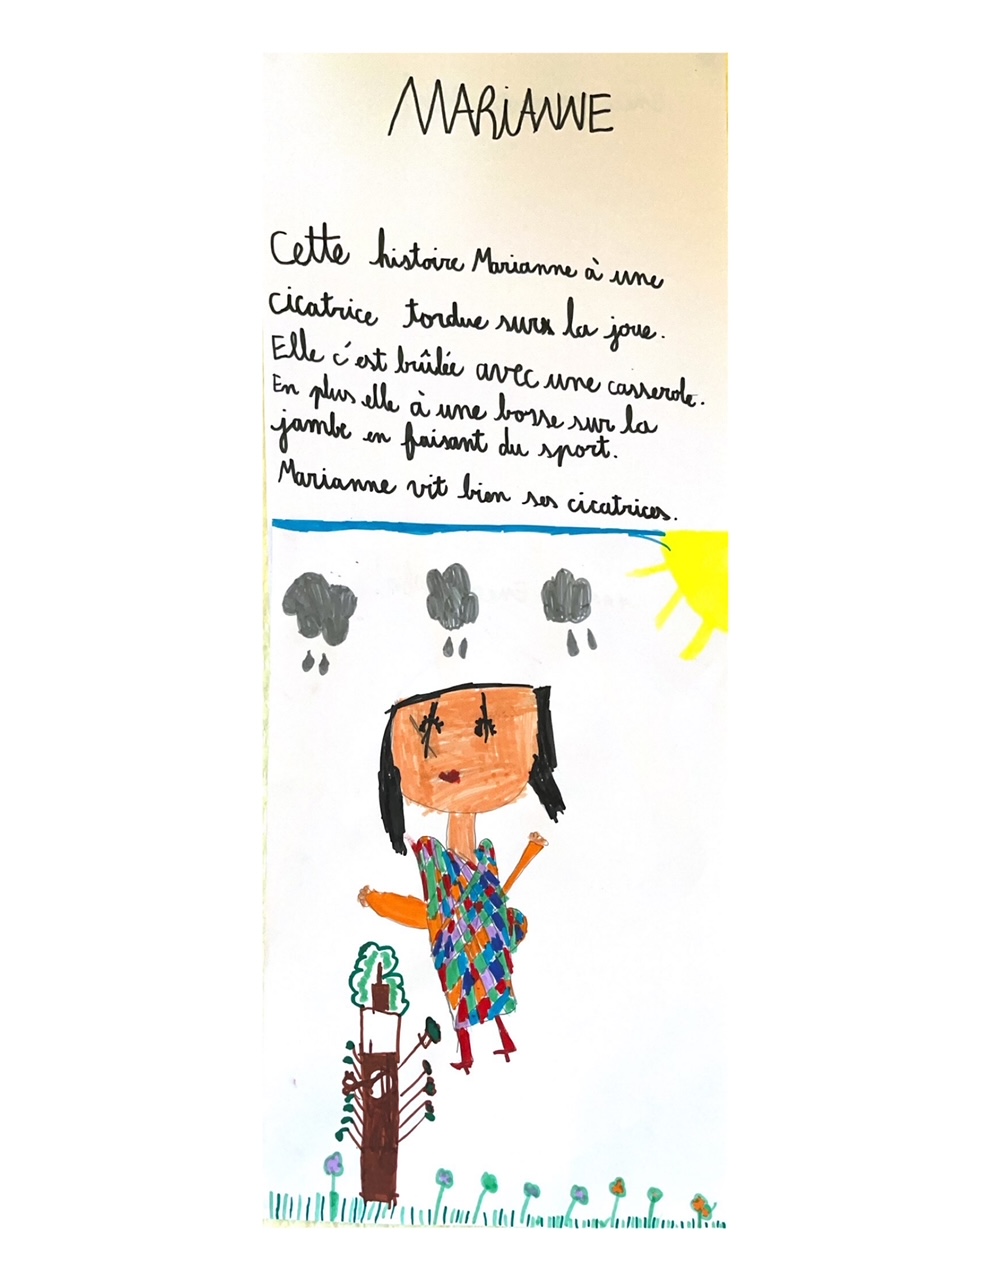 MARiANNE
Cette histoire Marianne à une
cicatrice tordue sur la joue.
Elle c'est brûlée avec une casserole.
En plus elle à une bosse sur la
jambe en faisant du sport.
Marianne vit bien ses cicatrices.